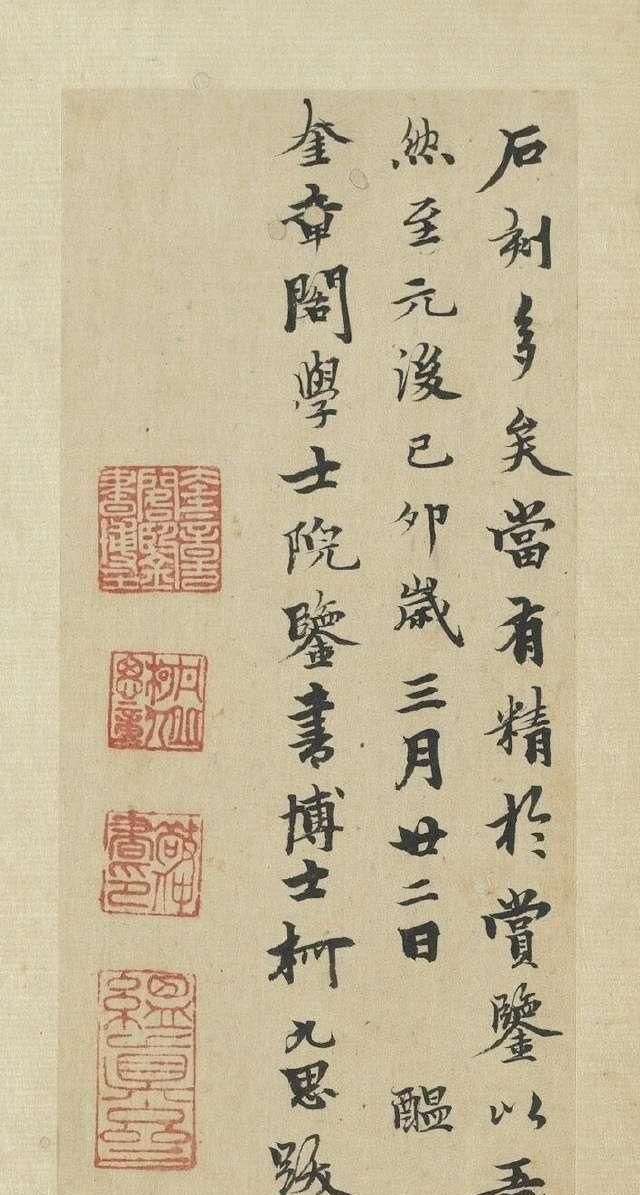 石刻多矣當有精於賞鑒以吾
然至元後己卯歲三月廿二日 醖
奎章閣學士院鑒書博士柯九思跋
奎章閣鑒書博士
縕真齋